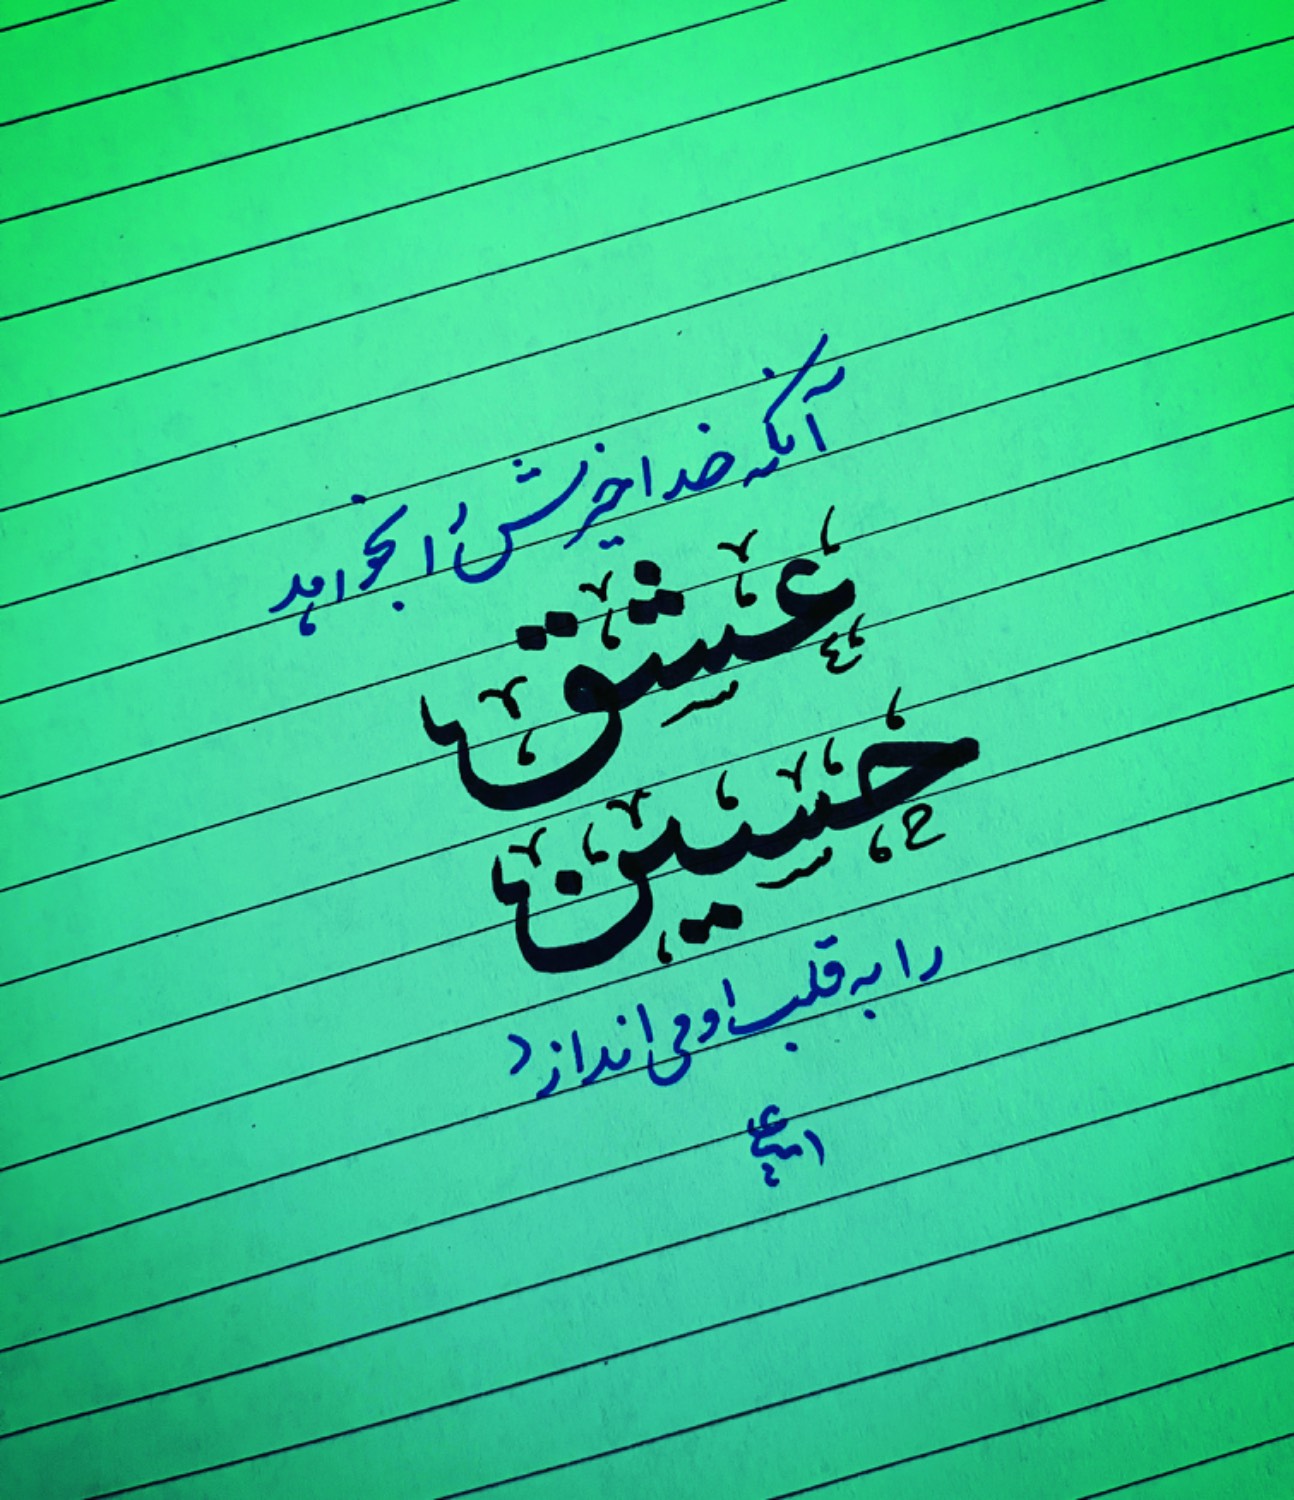 آنکه خدا خیرش را بخواهد
عشق
حسین
را به قلب او می اندازد